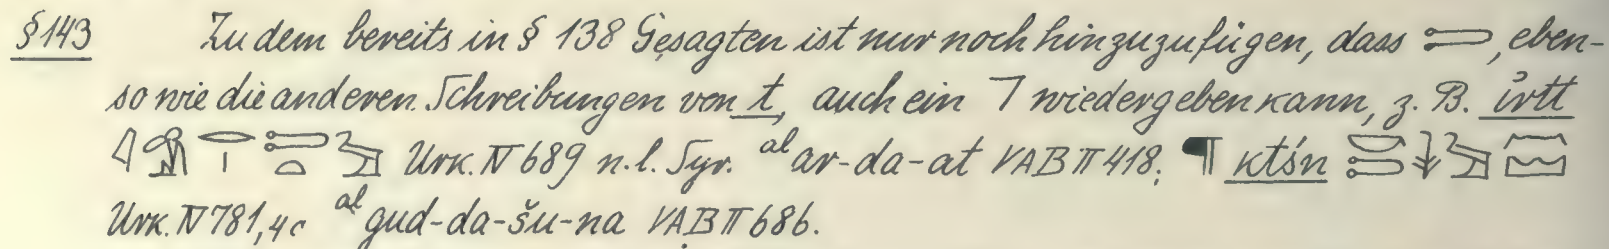 § 143 Zu dem bereits in § 138 Gesagten ist nur noch hinzuzufügen, dass 𓍿, eben-
so wie die anderen Schreibungen von ṯ, auch ein ד wiedergeben kann, z. B. i҆rtt
Urk. IV 689 n. l. Syr. al ar-da-at VAB II 418; ¶ ktśn
Urk. IV 781,4c al gud-da-šu-na VAB II 686.